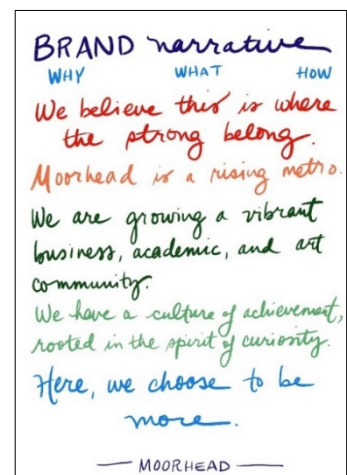 BRAND narrative
WHY WHAT HOW
We believe this is where
the strong belong.
Moorhead is a rising metro.
We are growing a vibrant
business, academic, and art
community.
We have a culture of achievement,
rooted in the spirit of curiosity.
Here, we choose to be
more.
MOORHEAD